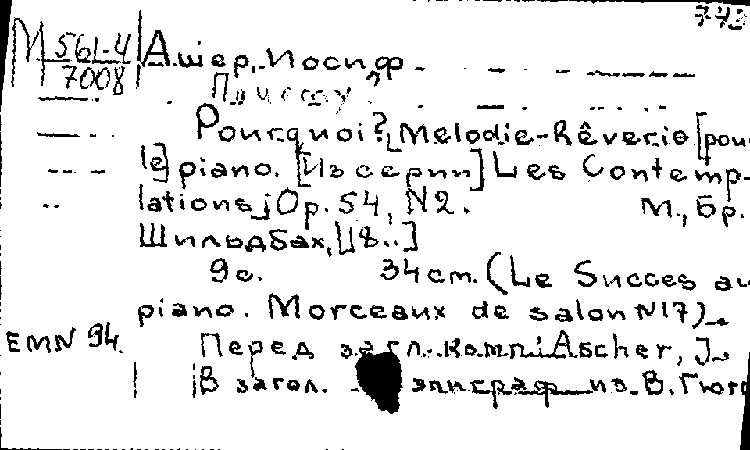 743
М 561-4/7008 Ашер, Иосиф.
Почему?
Pourquoi? [Melodie-Rêverie [pou
le] piano. [Из серии] Les Contemp-
lations] Op. 54, N2. М., Бр.
Шильдбах, [18..]
9с. 34 см. (Le Succes au
piano. Morceaux de salon N17).
EMN 94. Перед загл. комп.: Ascher, J.
В загол. эпиграф из В. Гюго